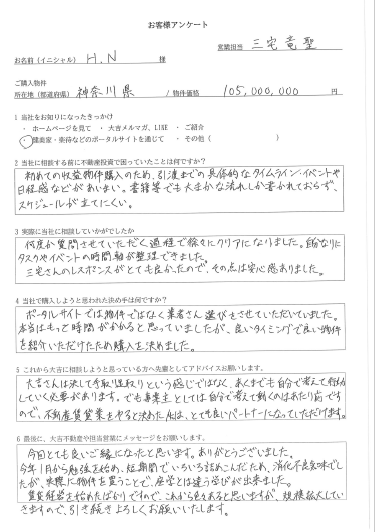 お客様アンケート
営業担当 三宅竜聖
お名前(イニシャル) H.N 様
ご購入物件
所在地(都道府県) 神奈川県 / 物件価格 105,000,000 円
1 当社をお知りになったきっかけ
・ ホームページを見て ・ 大吉メルマガ、LINE ・ ご紹介
・ 健美家・楽待などのポータルサイトを通じて ・ その他( )
2 当社に相談する前に不動産投資で困っていたことは何ですか?
初めての収益物件購入のため、引渡までの具体的なタイムライン・イベントや
日程感などがあいまい。書籍等でも大まかな流れしか書かれておらず、
スケジュールが立てにくい。
3 実際に当社に相談していかがでしたか
何度か質問させていただく過程で徐々にクリアになりました。自分なりに
タスクやイベントの時間軸が整理できました。
三宅さんのレスポンスがとても良かったので、その点は安心感ありました。
4 当社で購入しようと思われた決め手は何ですか?
ポータルサイトでは物件ではなく業者さん選びをさせていただいていました。
本当はもっと時間がかかると思っていましたが、良いタイミングで良い物件
を紹介いただけたため購入を決めました。
5 これから大吉に相談しようと思っている方へ先輩としてアドバイスお願いします。
大吉さんは決して手取り足取りという感じではなく、あくまでも自分で考えて行動
していく必要があります。でも事業主としては自分で考えて動くのはあたり前です
ので、不動産賃貸業をやると決めた人は、とても良いパートナーになっていただけます。
6 最後に、大吉不動産や担当営業にメッセージをお願いします。
今回とても良いご縁になったと思います。ありがとうございました。
今年1月から勉強を始め、短期間でいろいろ詰めこんだため、消化不良気味でし
たが、実際に物件を買うことで、座学とは違う学びが出来ました。
賃貸経営を始めたばかりですので、これから色々あると思いますが、規模拡大してい
きますので、引き続きよろしくお願いいたします。